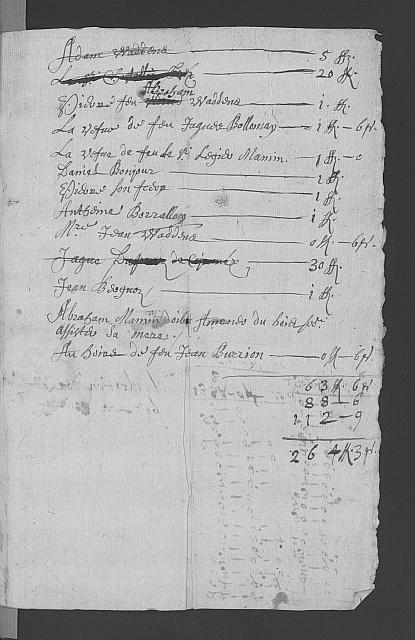 Adam Waddene — 5 ff.
20 ff.
Abraham
Pierre feu Waddene — 1 ff.
La vefue de feu Jaques Bollomay — 1 ff — 6 fl.
La vefue de feu de Sr Legier Mamin. — 1 ff — 0
Daniel Bonjour — 1 ff.
Pierre son frere — 1 ff.
Antheine Berrallaz — 1 ff.
Mre Jean Waddene — 0 ff — 6 fl.
Jaque de — 30 ff.
Jean Besgnoz — 1 ff.
Abraham Mamin doibt Amande du bois
assistée sa mere
Au hoirs de feu Jean Burrion — 0 ff — 6 fl.
6 3 ff. 6 fl
8 8 — 6
1 1 2 — 9
2 6 4 ff. 3 fl.